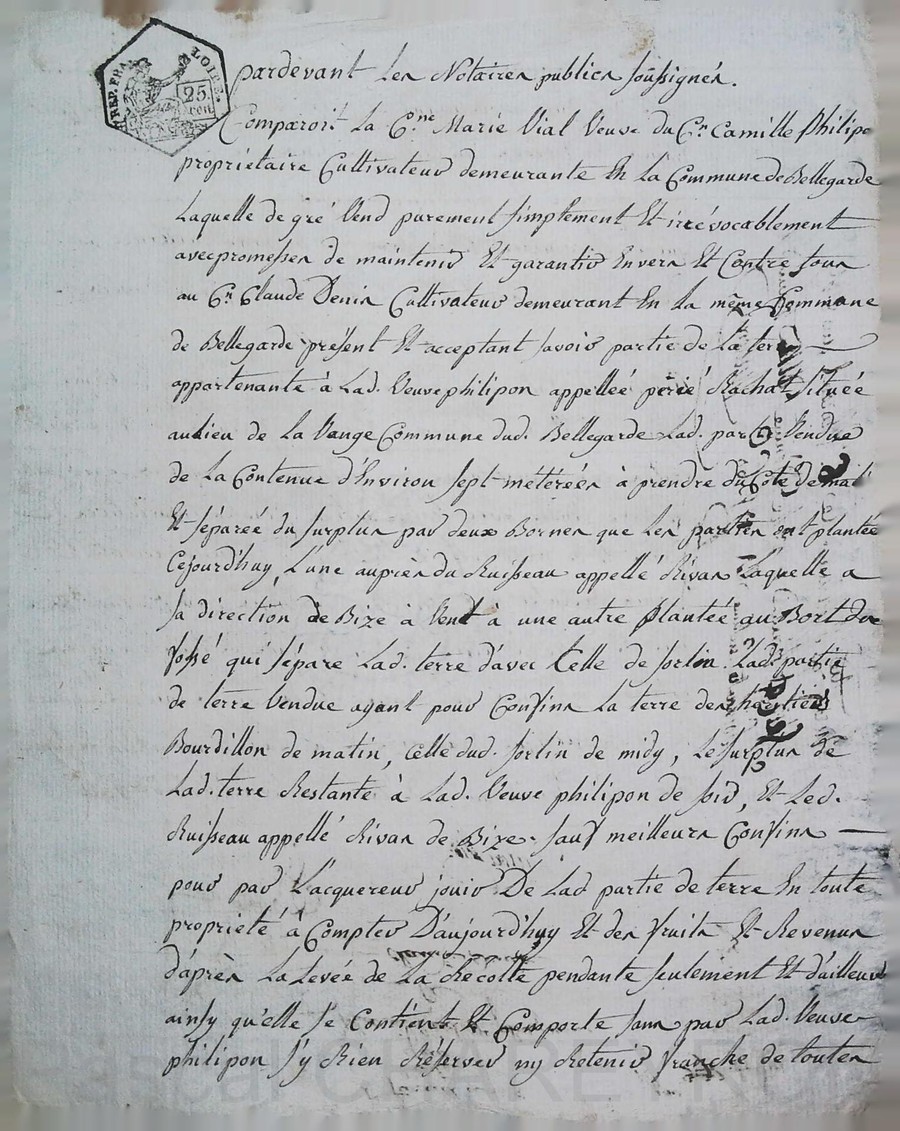 REP. FRA. LOIRE.
25. cen
pardevant les Notaires publics soussignés.
Comparoit La C.ne Marie Vial Veuve du C.n Camille Philipon
propriétaire Cultivateur demeurante En la Commune de Bellegarde
Laquelle de gré Vend purement simplement Et irrévocablement
avec promesses de maintenir Et garantir Envers Et Contre tous
au C.n Claude Denis Cultivateur demeurant En la même Commune
de Bellegarde présent Et acceptant savoir partie de la terre
appartenante à Lad. Veuve philipon appellée Rachat Située
au lieu de La Vange Commune dud. Bellegarde Lad. partie Vendue
de La Contenue d'Environ sept métérées à prendre du Coté de matin
Et séparée du surplus par deux Bornes que les parties ont plantée
Cejourd'huy, L'une auprès du Ruisseau appellé Rivas Laquelle a
sa direction de Bize à Vent à une autre plantée au Bort du
fossé qui sépare Lad. terre d'avec Celle de fortin Lad. partie
de terre Vendue ayant pour Confins La terre des héritiers
Bourdillon de matin, Celle dud. fortin de midy, Le Surplus de
Lad. terre Restante à Lad. Veuve philipon de soir, Et Led.
Ruisseau appellé Rivas de Bize. sauf meilleurs Confins
pour par L'acquereur jouir De Lad partie de terre En toute
proprieté à Compter D'aujourd'huy Et des fruits Et Revenus
d'après La Levée de La Récolte pendante seulement Et d'ailleurs
ainsy qu'elle se Contient Et Comporte sans par Lad. Veuve
philipon s'y Rien Réserver ny Retenir franche de toutes